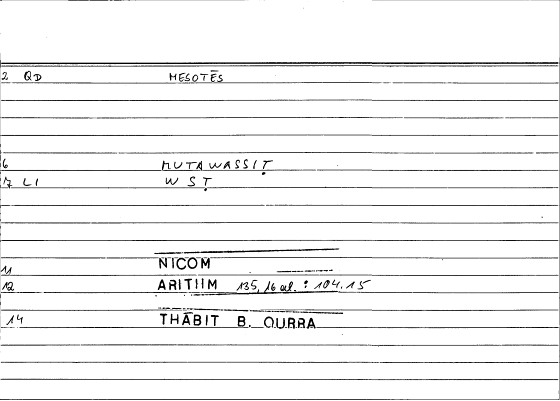 2 QD MESOTĒS
6 MUTAWASSIṬ
7 LI WSṬ
11 NICOM
12 ARITHM 135, 16 al. : 104.15
14 THĀBIT B. QURRA